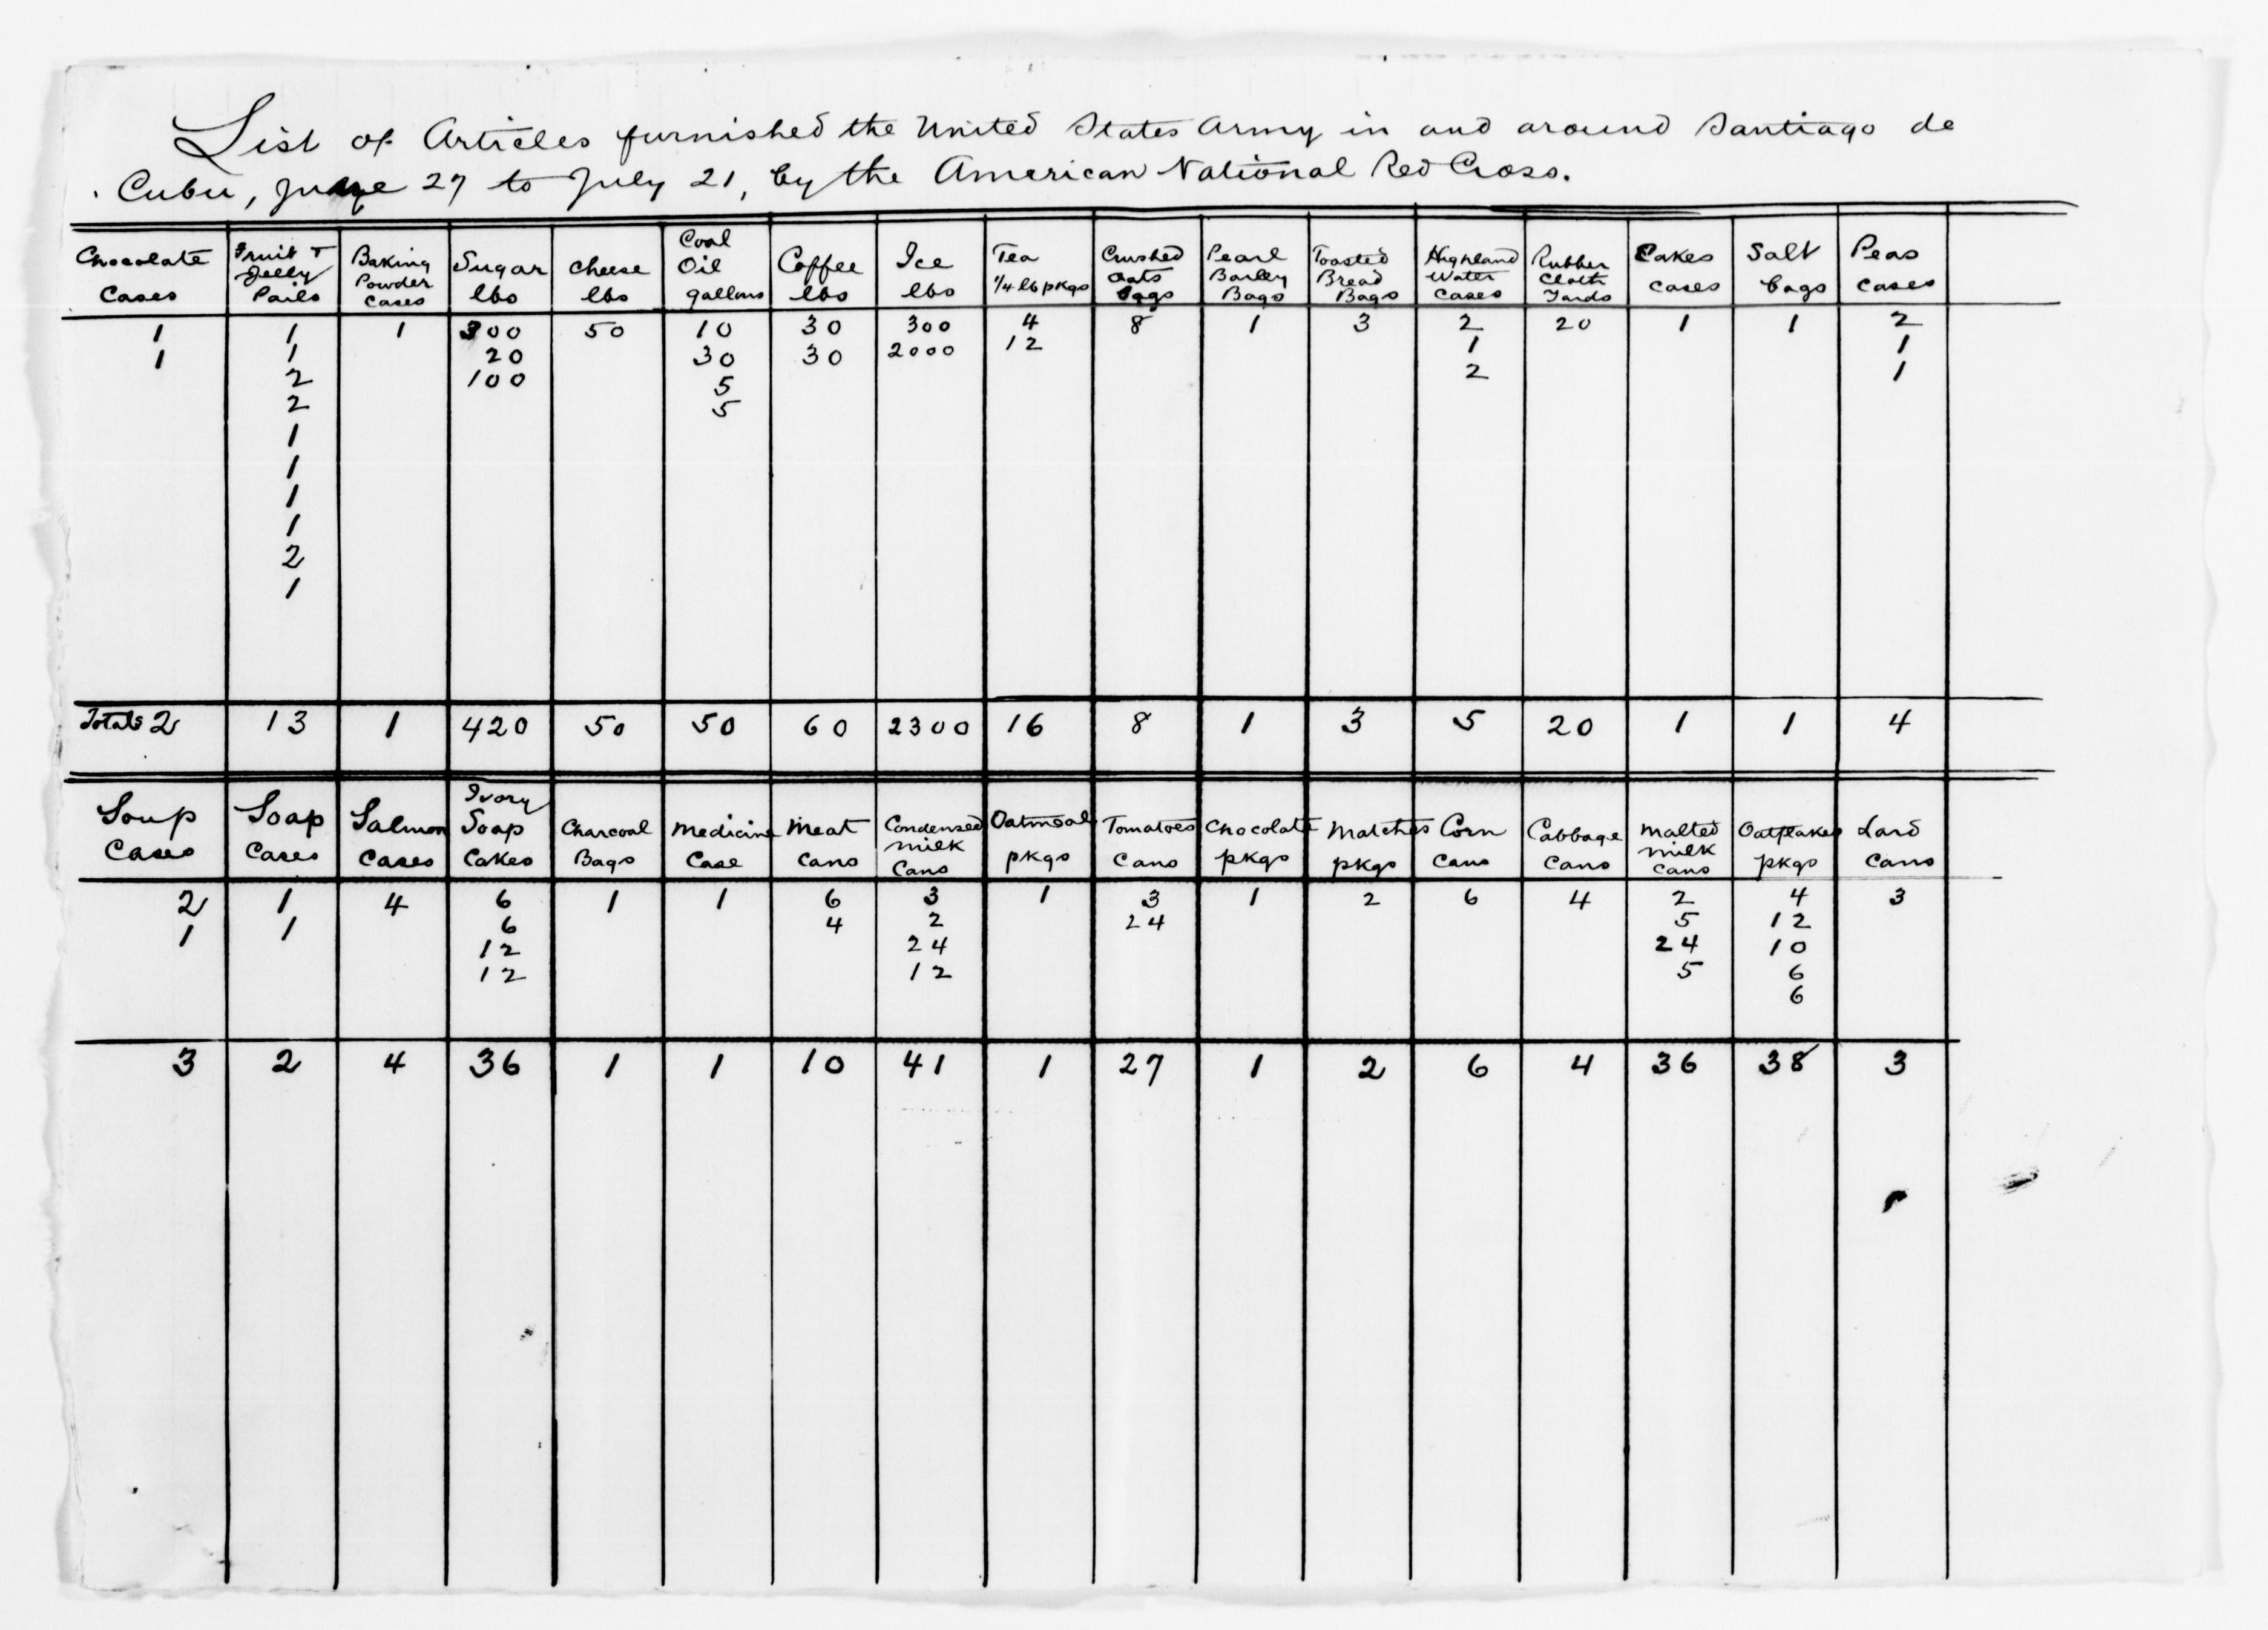 List of Articles furnished the United States Army in and around Santiago de
Cuba, June 27 to July 21, by the American National Red Cross.
Chocolate Cases | Fruit & Jelly Pails | Baking Powder Cases | Sugar lbs | Cheese lbs | Coal Oil gallons | Coffee lbs | Ice lbs | Tea 1/4 lb pkgs | Crushed Oats bags | Pearl Barley Bags | Toasted Bread Bags | Highland Water Cases | Rubber Cloth Yards | Cakes cases | Salt bags | Peas cases
1 | 1 | 1 | 300 | 50 | 10 | 30 | 300 | 4 | 8 | 1 | 3 | 2 | 20 | 1 | 1 | 2
1 | 1 | | 20 | | 30 | 30 | 2000 | 12 | | | | 1 | | | | 1
| 2 | | 100 | | 5 | | | | | | | 2 | | | | 1
| 2 | | | | 5
| 1
| 1
| 1
| 1
| 2
| 1
Totals 2 | 13 | 1 | 420 | 50 | 50 | 60 | 2300 | 16 | 8 | 1 | 3 | 5 | 20 | 1 | 1 | 4
Soup Cases | Soap Cases | Salmon Cases | Ivory Soap Cakes | Charcoal Bags | Medicine Case | Meat Cans | Condensed Milk Cans | Oatmeal pkgs | Tomatoes Cans | Chocolate pkgs | Matches pkgs | Corn Cans | Cabbage Cans | Malted Milk Cans | Oatflakes pkgs | Lard Cans
2 | 1 | 4 | 6 | 1 | 1 | 6 | 3 | 1 | 3 | 1 | 2 | 6 | 4 | 2 | 4 | 3
1 | 1 | | 6 | | | 4 | 2 | | 24 | | | | | 5 | 12
| | | 12 | | | | 24 | | | | | | | 24 | 10
| | | 12 | | | | 12 | | | | | | | 5 | 6
| | | | | | | | | | | | | | | 6
3 | 2 | 4 | 36 | 1 | 1 | 10 | 41 | 1 | 27 | 1 | 2 | 6 | 4 | 36 | 38 | 3